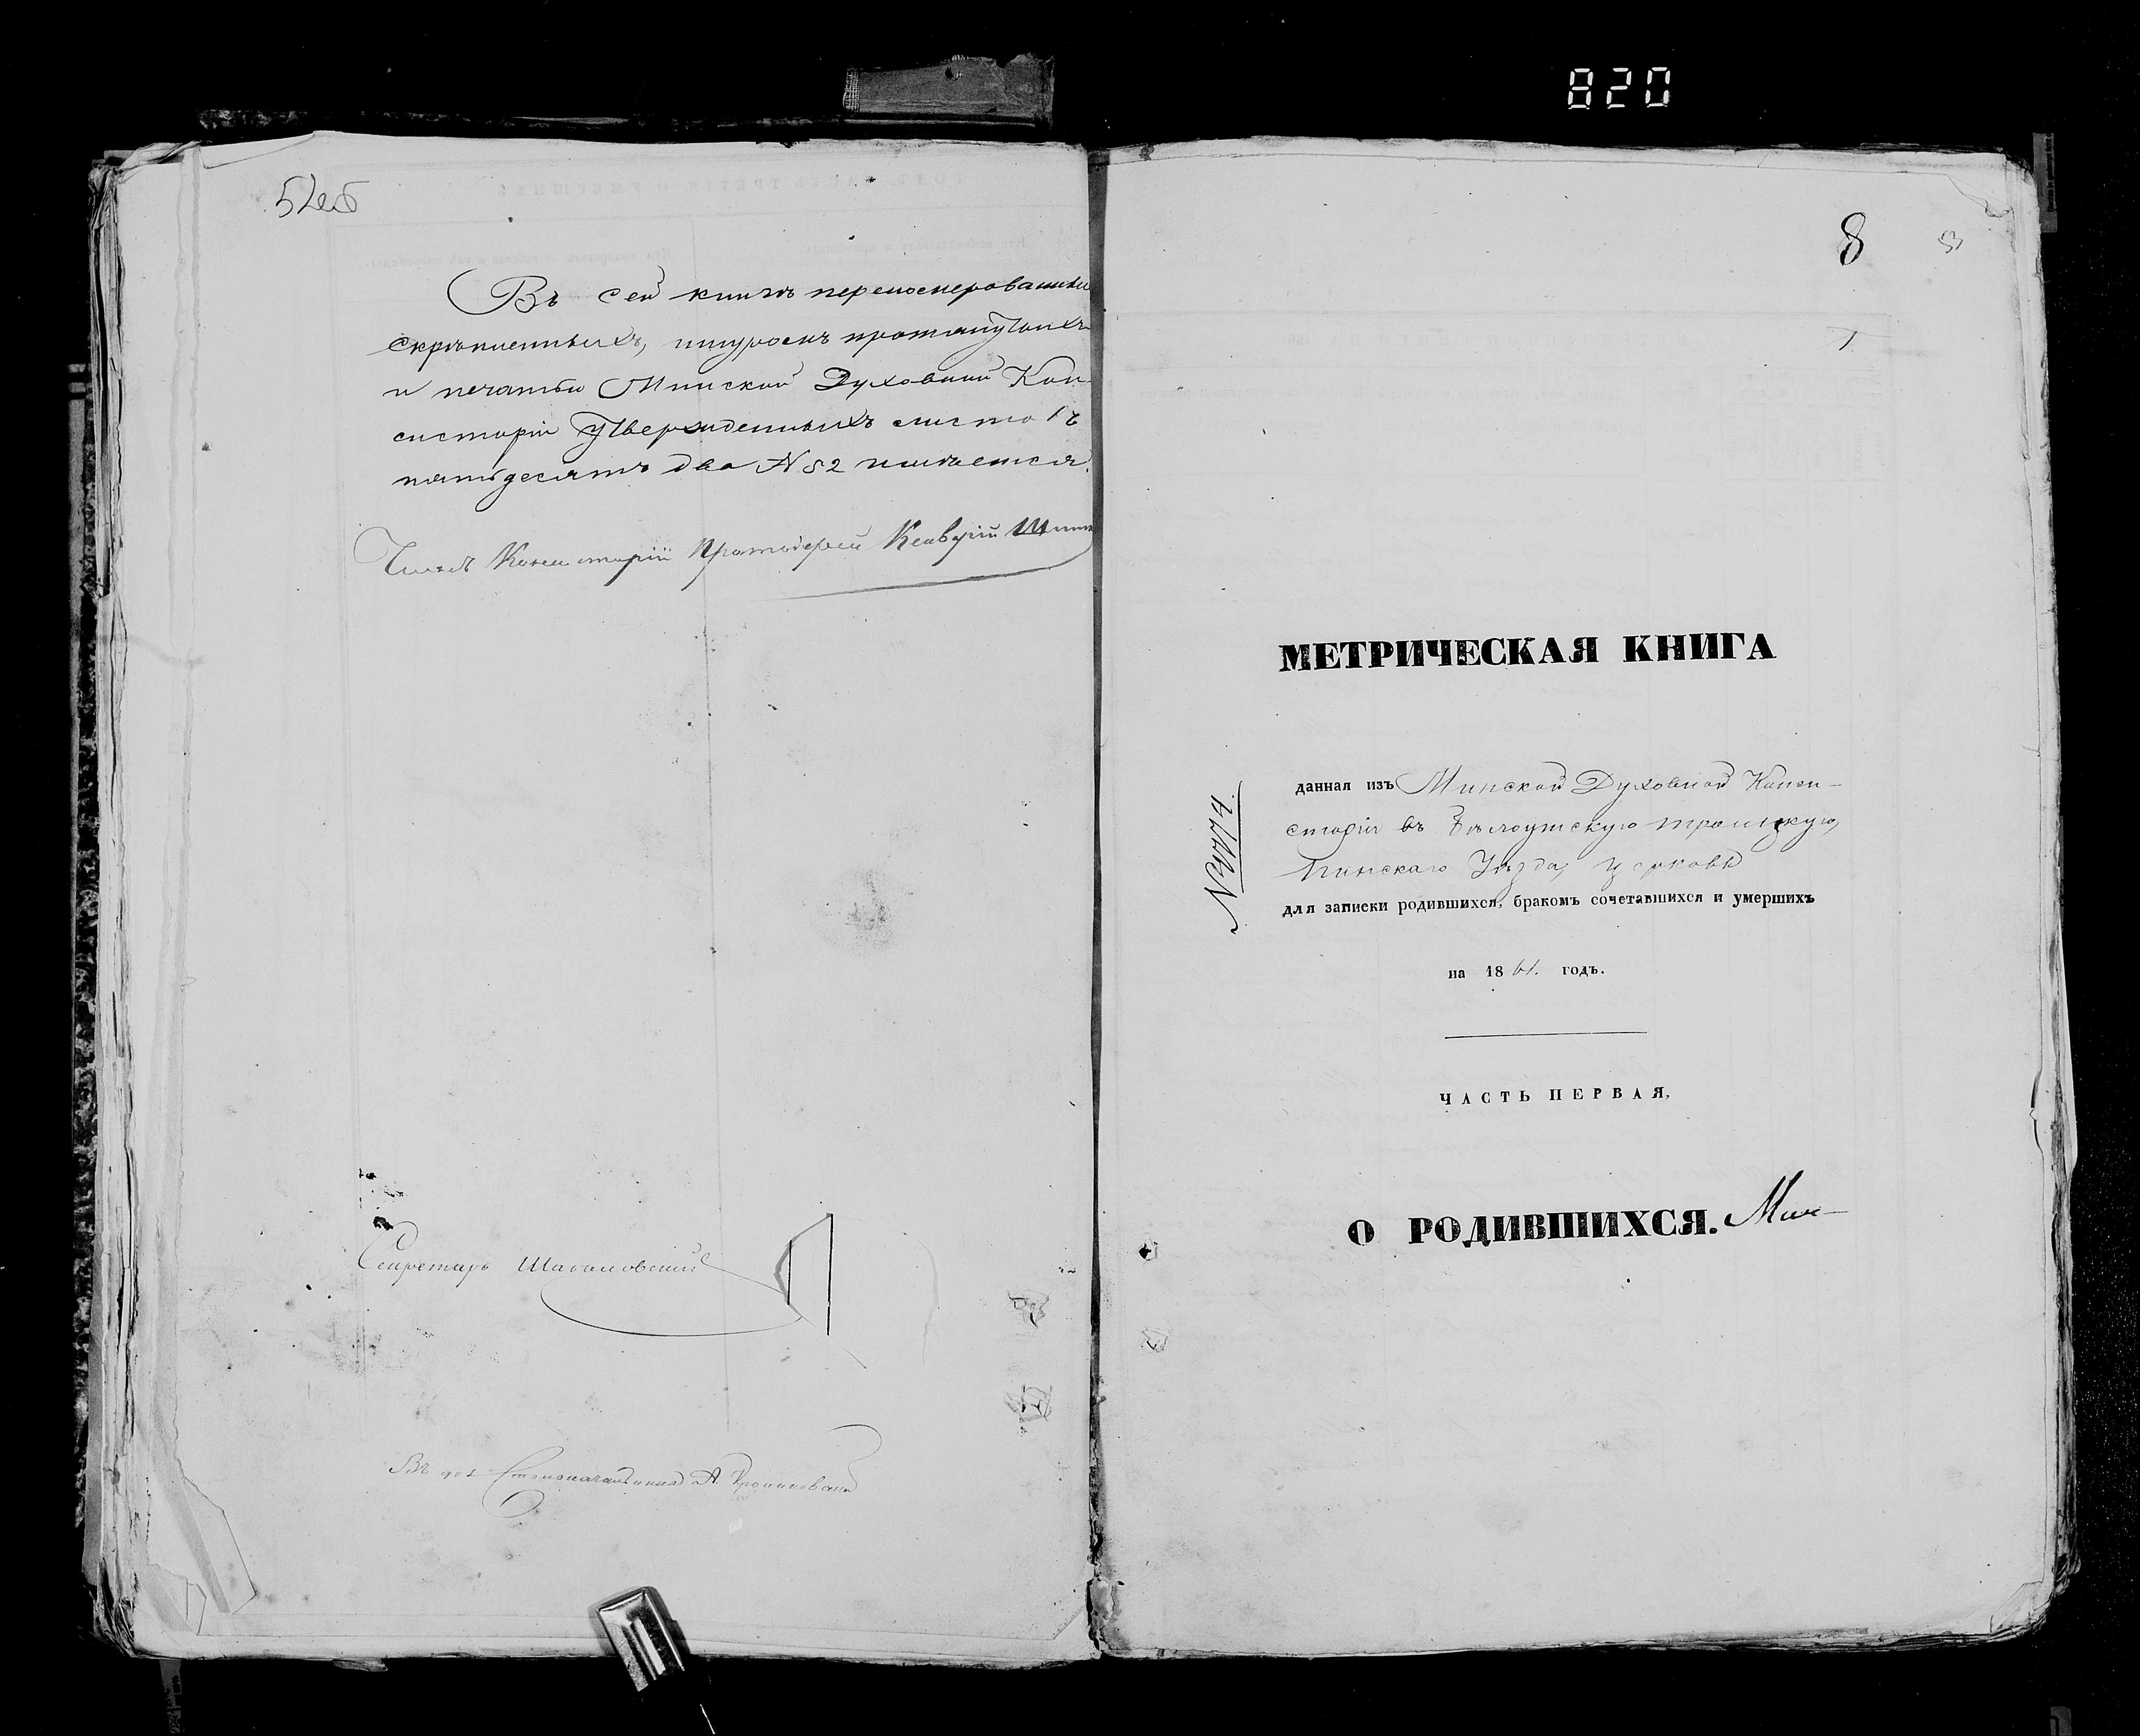 820
52об
Въ сей книгѣ перенумерованныхъ
скрѣпленныхъ, шнуромъ протянутыхъ
и печатью Минской Духовной Кон-
систоріи утвержденныхъ листовъ
пятьдесятъ два N 52 имѣется.
Членъ Консисторіи Протоіерей
Секретарь
Столоначальника А.
8
53
1
МЕТРИЧЕСКАЯ КНИГА
данная изъ Минской Духовной Конси-
сторіи въ Бѣлоушскую Троицкую,
Пинскаго Уѣзда, церковь
для записки родившихся, бракомъ сочетавшихся и умершихъ
на 1861. годъ.
ЧАСТЬ ПЕРВАЯ,
О РОДИВШИХСЯ. Мин-